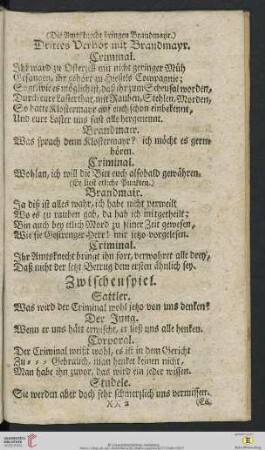 (Die Amtsknecht bringen Brandmayr.)
Drittes Verhör mit Brandmayr.
Criminal.
Ihr ward zu Osterzell mit nicht geringer Müh
Gefangen, ihr gehört zu Hiesels Compagnie;
Sagt wie es möglich ist, daß ihr zum Scheusal worden,
Durch eure Lasterthat, mit Rauben, Stehlen, Morden,
So hatts Klostermayr auf euch schon einbekennt,
Und eure Laster uns fast alle hergenennt.
Brandmair.
Was sprach denn Klostermayr? ich möcht es gern
hören.
Criminal.
Wohlan, ich will die Bitt euch alsobald gewähren,
(Er liest etliche Punkten.)
Brandmair.
Ja diß ist alles wahr, ich habe nicht verweilt
Wo es zu rauben gab, da hab ich mitgetheilt;
Bin auch bey etlich Mord zu seiner Zeit gewesen,
Wie sie Gestrenger Herr! mir jetzo vorgelesen.
Criminal.
Ihr Amtsknecht bringt ihn fort, verwahret alle drey,
Daß nicht der letzt Betrug dem ersten ähnlich sey.
Zwischenspiel.
Sattler.
Was wird der Criminal wohl jetzo von uns denken?
Der Jung.
Wenn er uns hätt erwischt, er ließ uns alle henken.
Corporal.
Der Criminal weißt wohl, es ist in dem Gericht
Zu = = = Gebrauch, man henket keinen nicht,
Man habe ihn zuvor, das wird ein jeder wissen.
Studele.
Sie werden aber doch sehr schmerzlich uns vermissen.
X 2